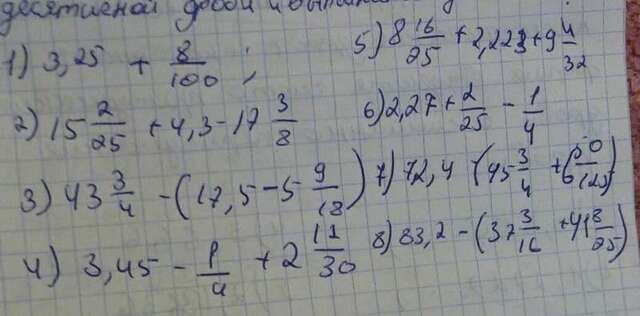 десятичной дроби и выполни
1) 3,25 + 8/100 ;
2) 15 2/25 + 4,3 - 17 3/8
3) 43 3/4 - (17,5 - 5 9/18)
4) 3,45 - 1/4 + 2 11/30
5) 8 16/25 + 2,223 + 9 4/32
6) 2,27 + 2/25 - 1/4
7) 72,4 - (45 3/4 + 6 50/125)
8) 83,2 - (37 3/16 + 41 8/25)